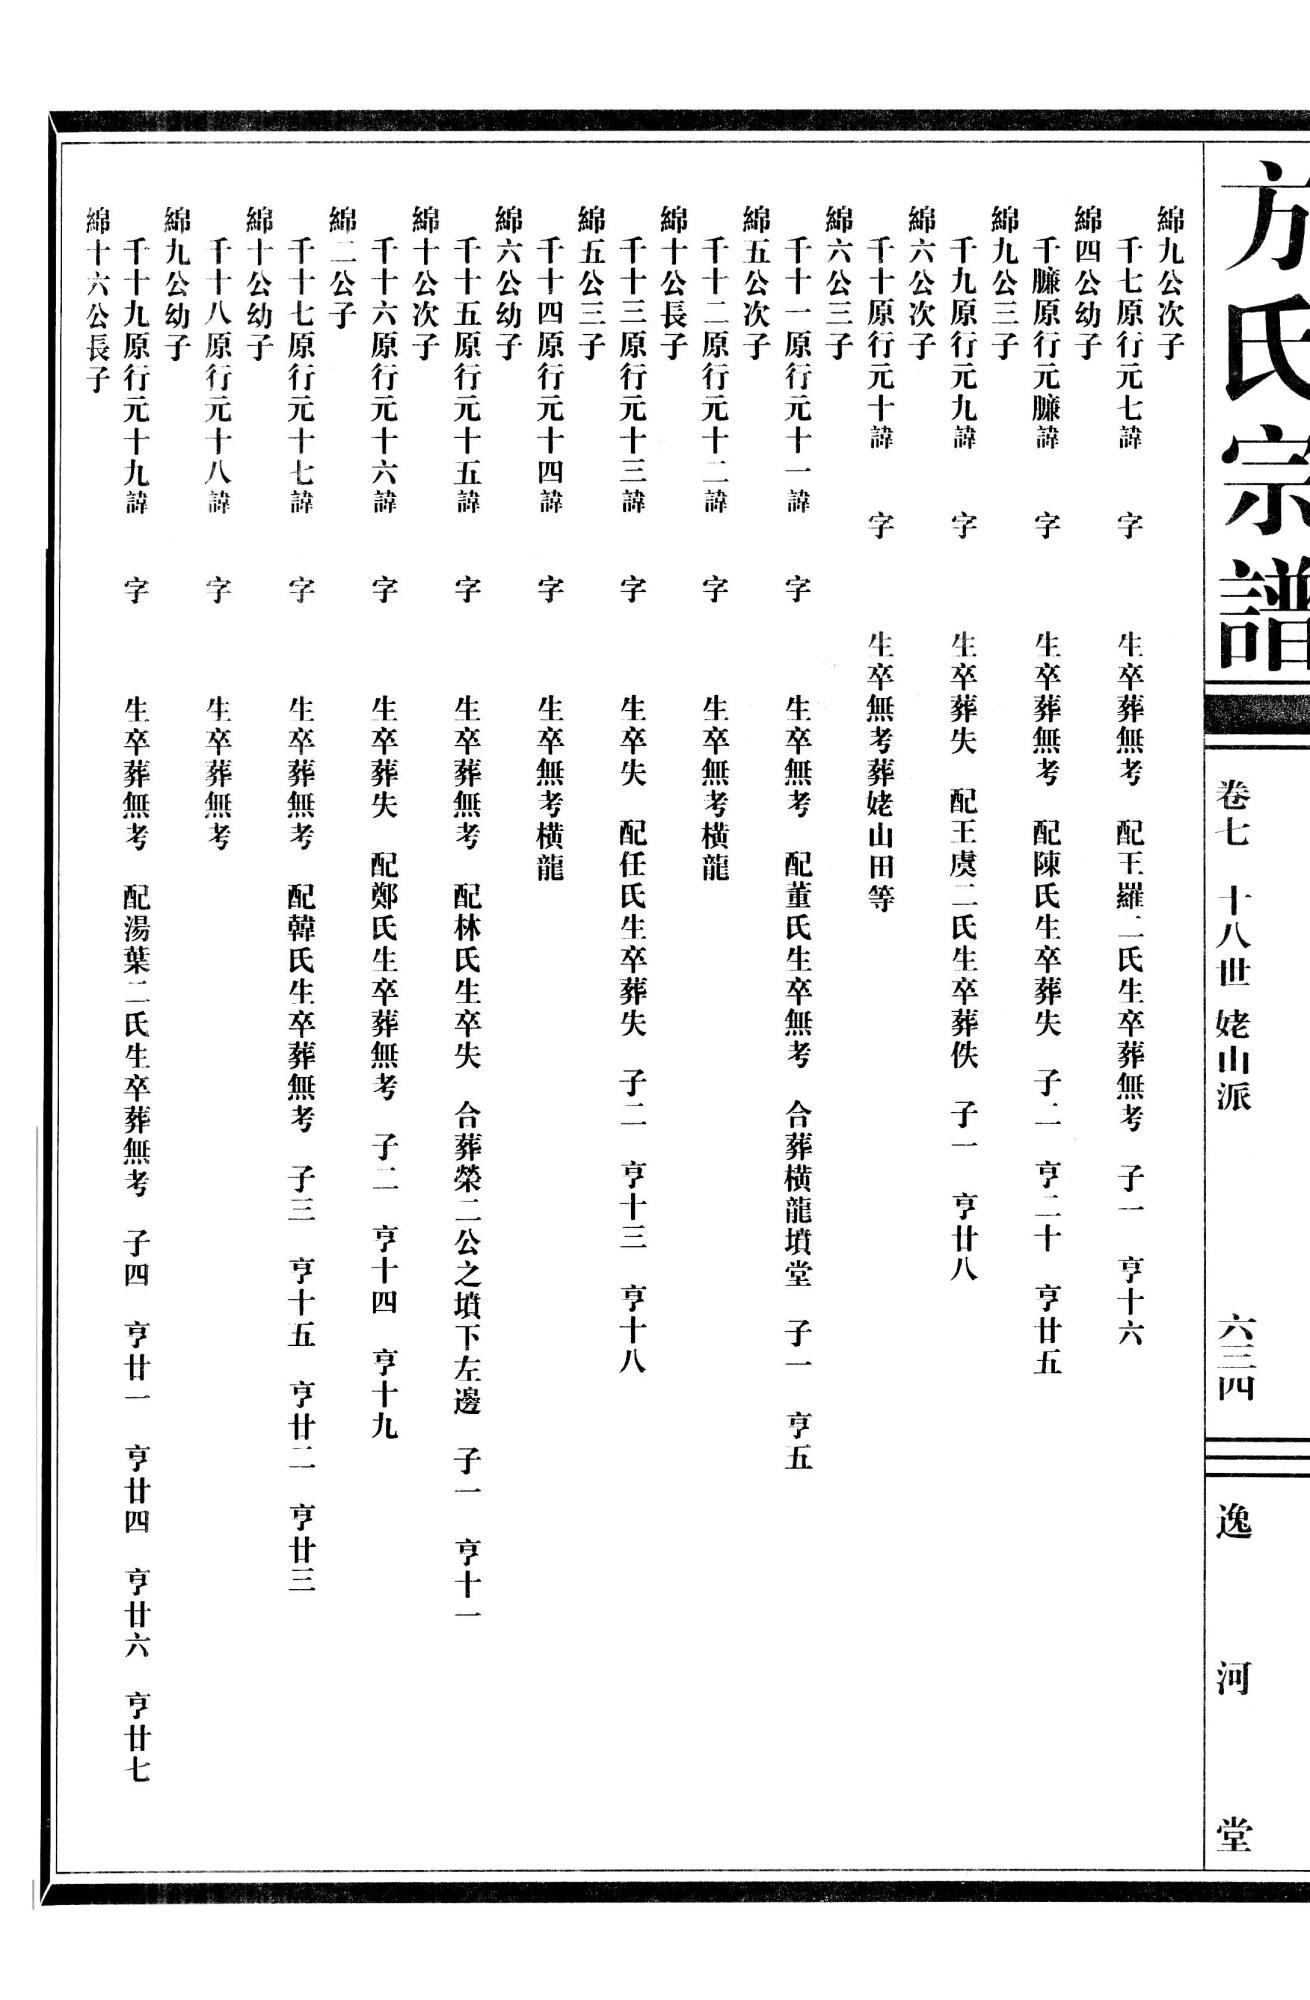 方氏宗譜
卷七　十八世　姥山派　六三四
逸河堂
綿九公次子
千七原行元七諱　字　生卒葬無考　配王羅二氏生卒葬無考　子一　亨十六
綿四公幼子
千臁原行元臁諱　字　生卒葬無考　配陳氏生卒葬失　子二　亨二十　亨廿五
綿九公三子
千九原行元九諱　字　生卒葬失　配王虞二氏生卒葬佚　子一　亨廿八
綿六公次子
千十原行元十諱　字　生卒無考葬姥山田等
綿六公三子
千十一原行元十一諱　字　生卒無考　配董氏生卒無考　合葬橫龍墳堂　子一　亨五
綿五公次子
千十二原行元十二諱　字　生卒無考橫龍
綿十公長子
千十三原行元十三諱　字　生卒失　配任氏生卒葬失　子二　亨十三　亨十八
綿五公三子
千十四原行元十四諱　字　生卒無考橫龍
綿六公幼子
千十五原行元十五諱　字　生卒葬無考　配林氏生卒失　合葬榮二公之墳下左邊　子一　亨十一
綿十公次子
千十六原行元十六諱　字　生卒葬失　配鄭氏生卒葬無考　子二　亨十四　亨十九
綿二公子
千十七原行元十七諱　字　生卒葬無考　配韓氏生卒葬無考　子三　亨十五　亨廿二　亨廿三
綿十公幼子
千十八原行元十八諱　字　生卒葬無考
綿九公幼子
千十九原行元十九諱　字　生卒葬無考　配湯葉二氏生卒葬無考　子四　亨廿一　亨廿四　亨廿六　亨廿七
綿十六公長子